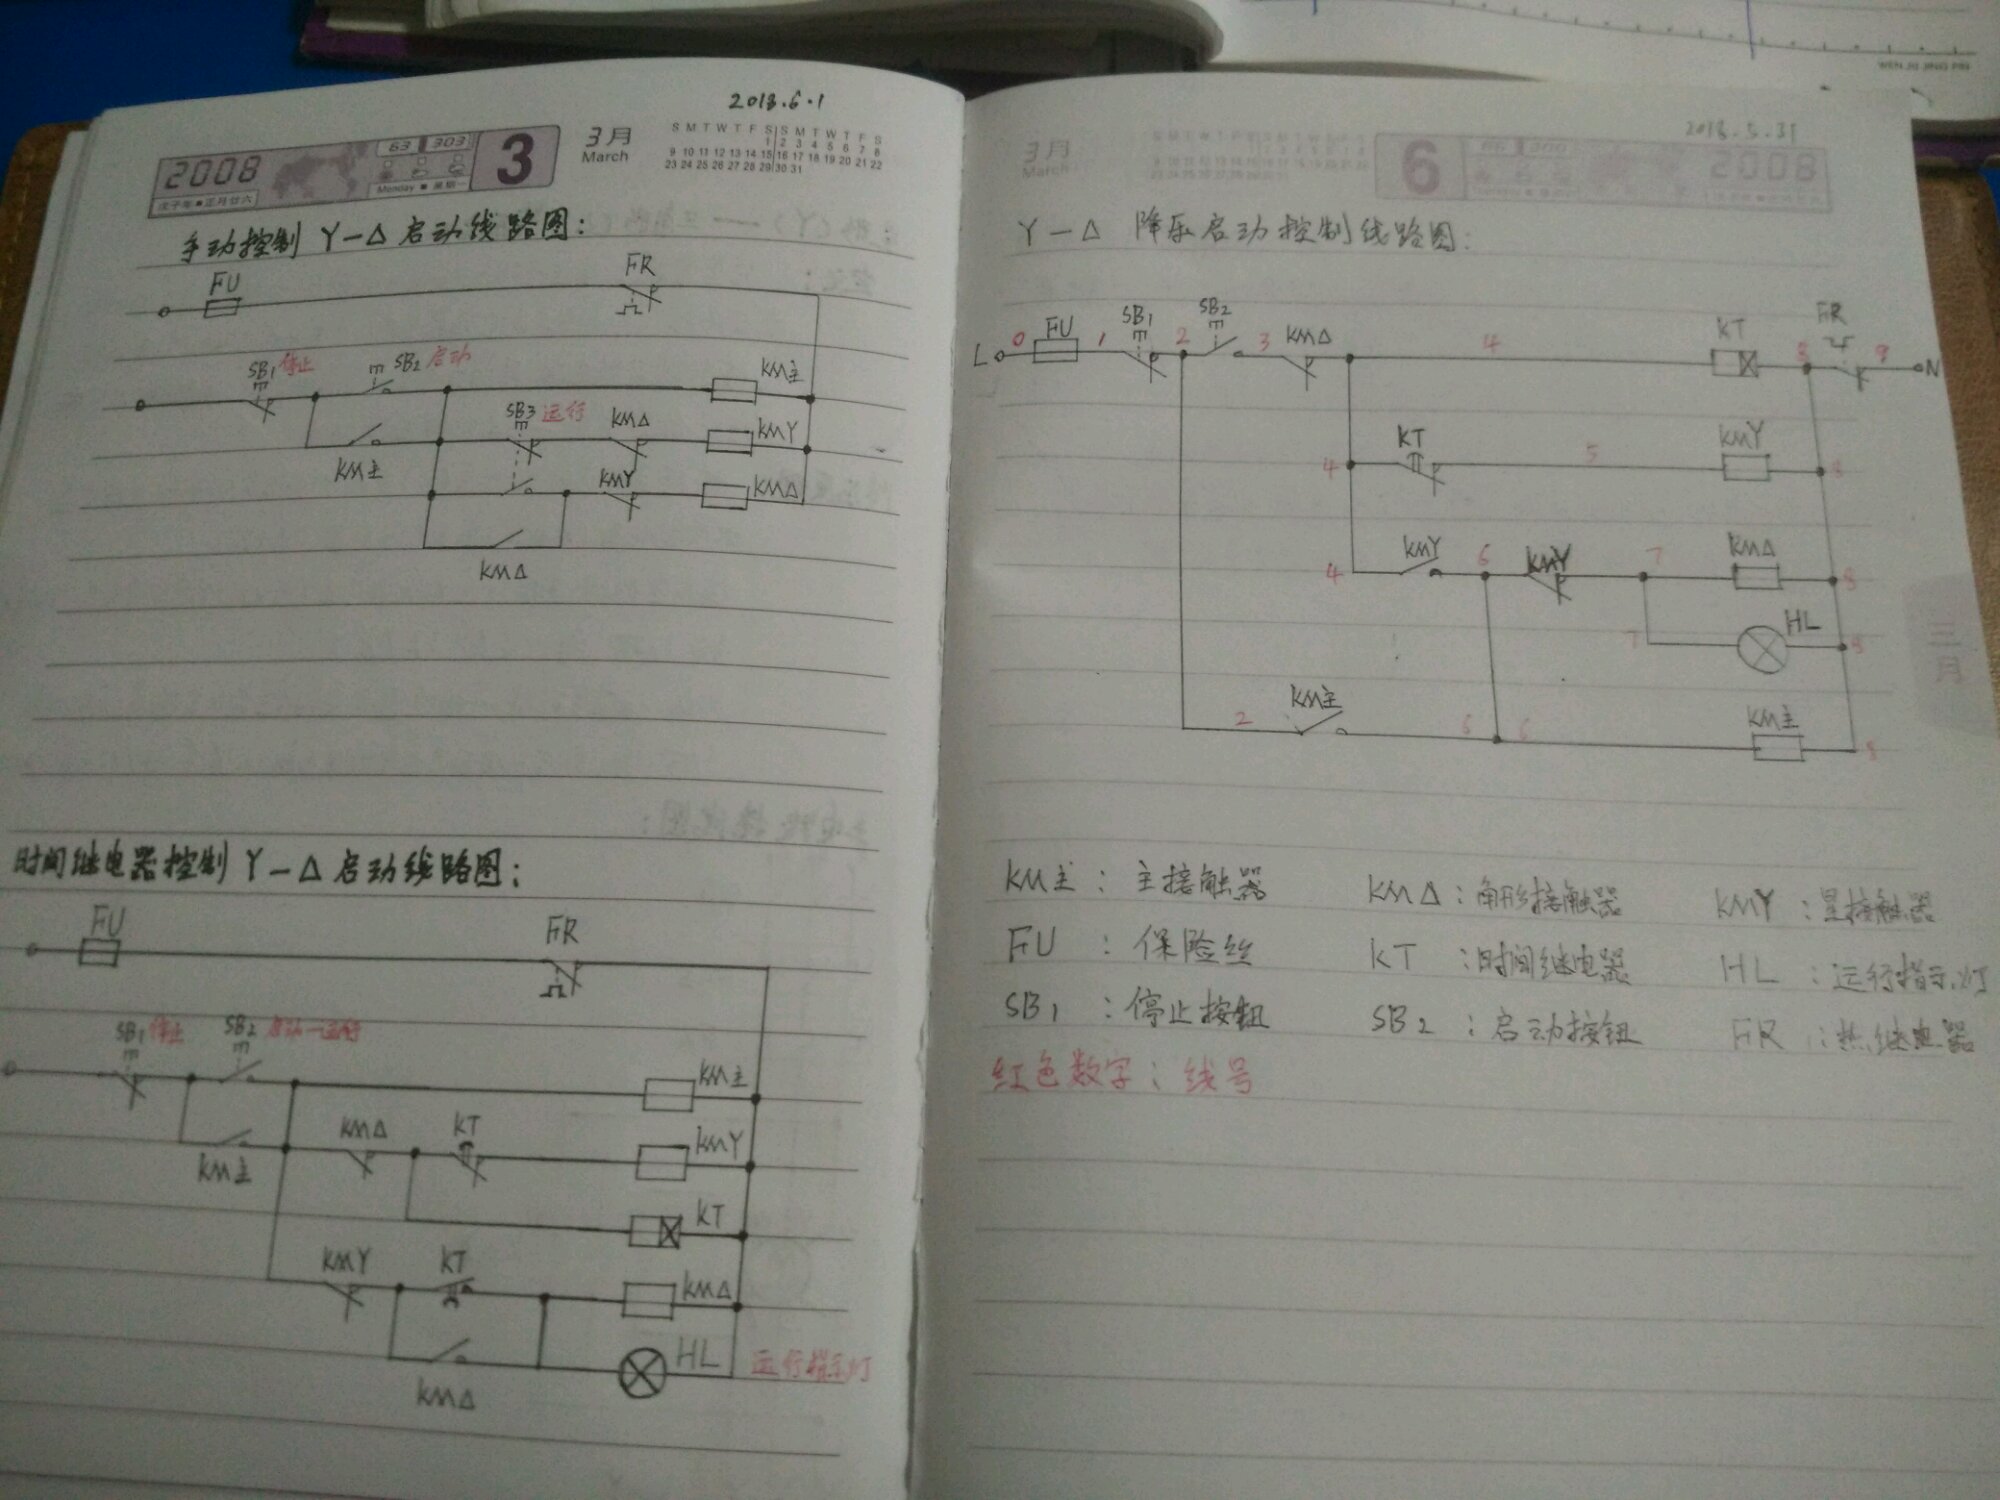 WEN JU JING PIN
2018.6.1
2008
63 303
3
Monday ■ 星期一
戊子年■正月廿六
3月
March
S M T W T F S S M T W T F S
1 2 3 4 5 6 7 8
9 10 11 12 13 14 15 16 17 18 19 20 21 22
23 24 25 26 27 28 29 30 31
手动控制 Y－Δ 启动线路图：
FU
FR
SB1 停止
SB2 启动
KM主
SB3 运行
KMΔ
KMY
KM主
KMY
KMΔ
KMΔ
时间继电器控制 Y－Δ 启动线路图：
FU
FR
SB1 停止
SB2 启动－运行
KM主
KM主
KMΔ
KT
KMY
KT
KMY
KT
KMΔ
HL
运行指示灯
KMΔ
2018.5.31
Y－Δ 降压启动控制线路图：
L
0
FU
1
SB1
2
SB2
3
KMΔ
4
KT
8
FR
9
N
4
KT
5
KMY
8
4
KMY
6
KMY
7
KMΔ
8
7
HL
8
2
KM主
6
6
KM主
8
三月
KM主：主接触器 KMΔ：角形接触器 KMY：星接触器
FU：保险丝 KT：时间继电器 HL：运行指示灯
SB1：停止按钮 SB2：启动按钮 FR：热继电器
红色数字：线号